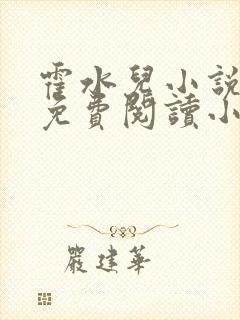 霍水兒小說
免費閱讀小
嚴建華